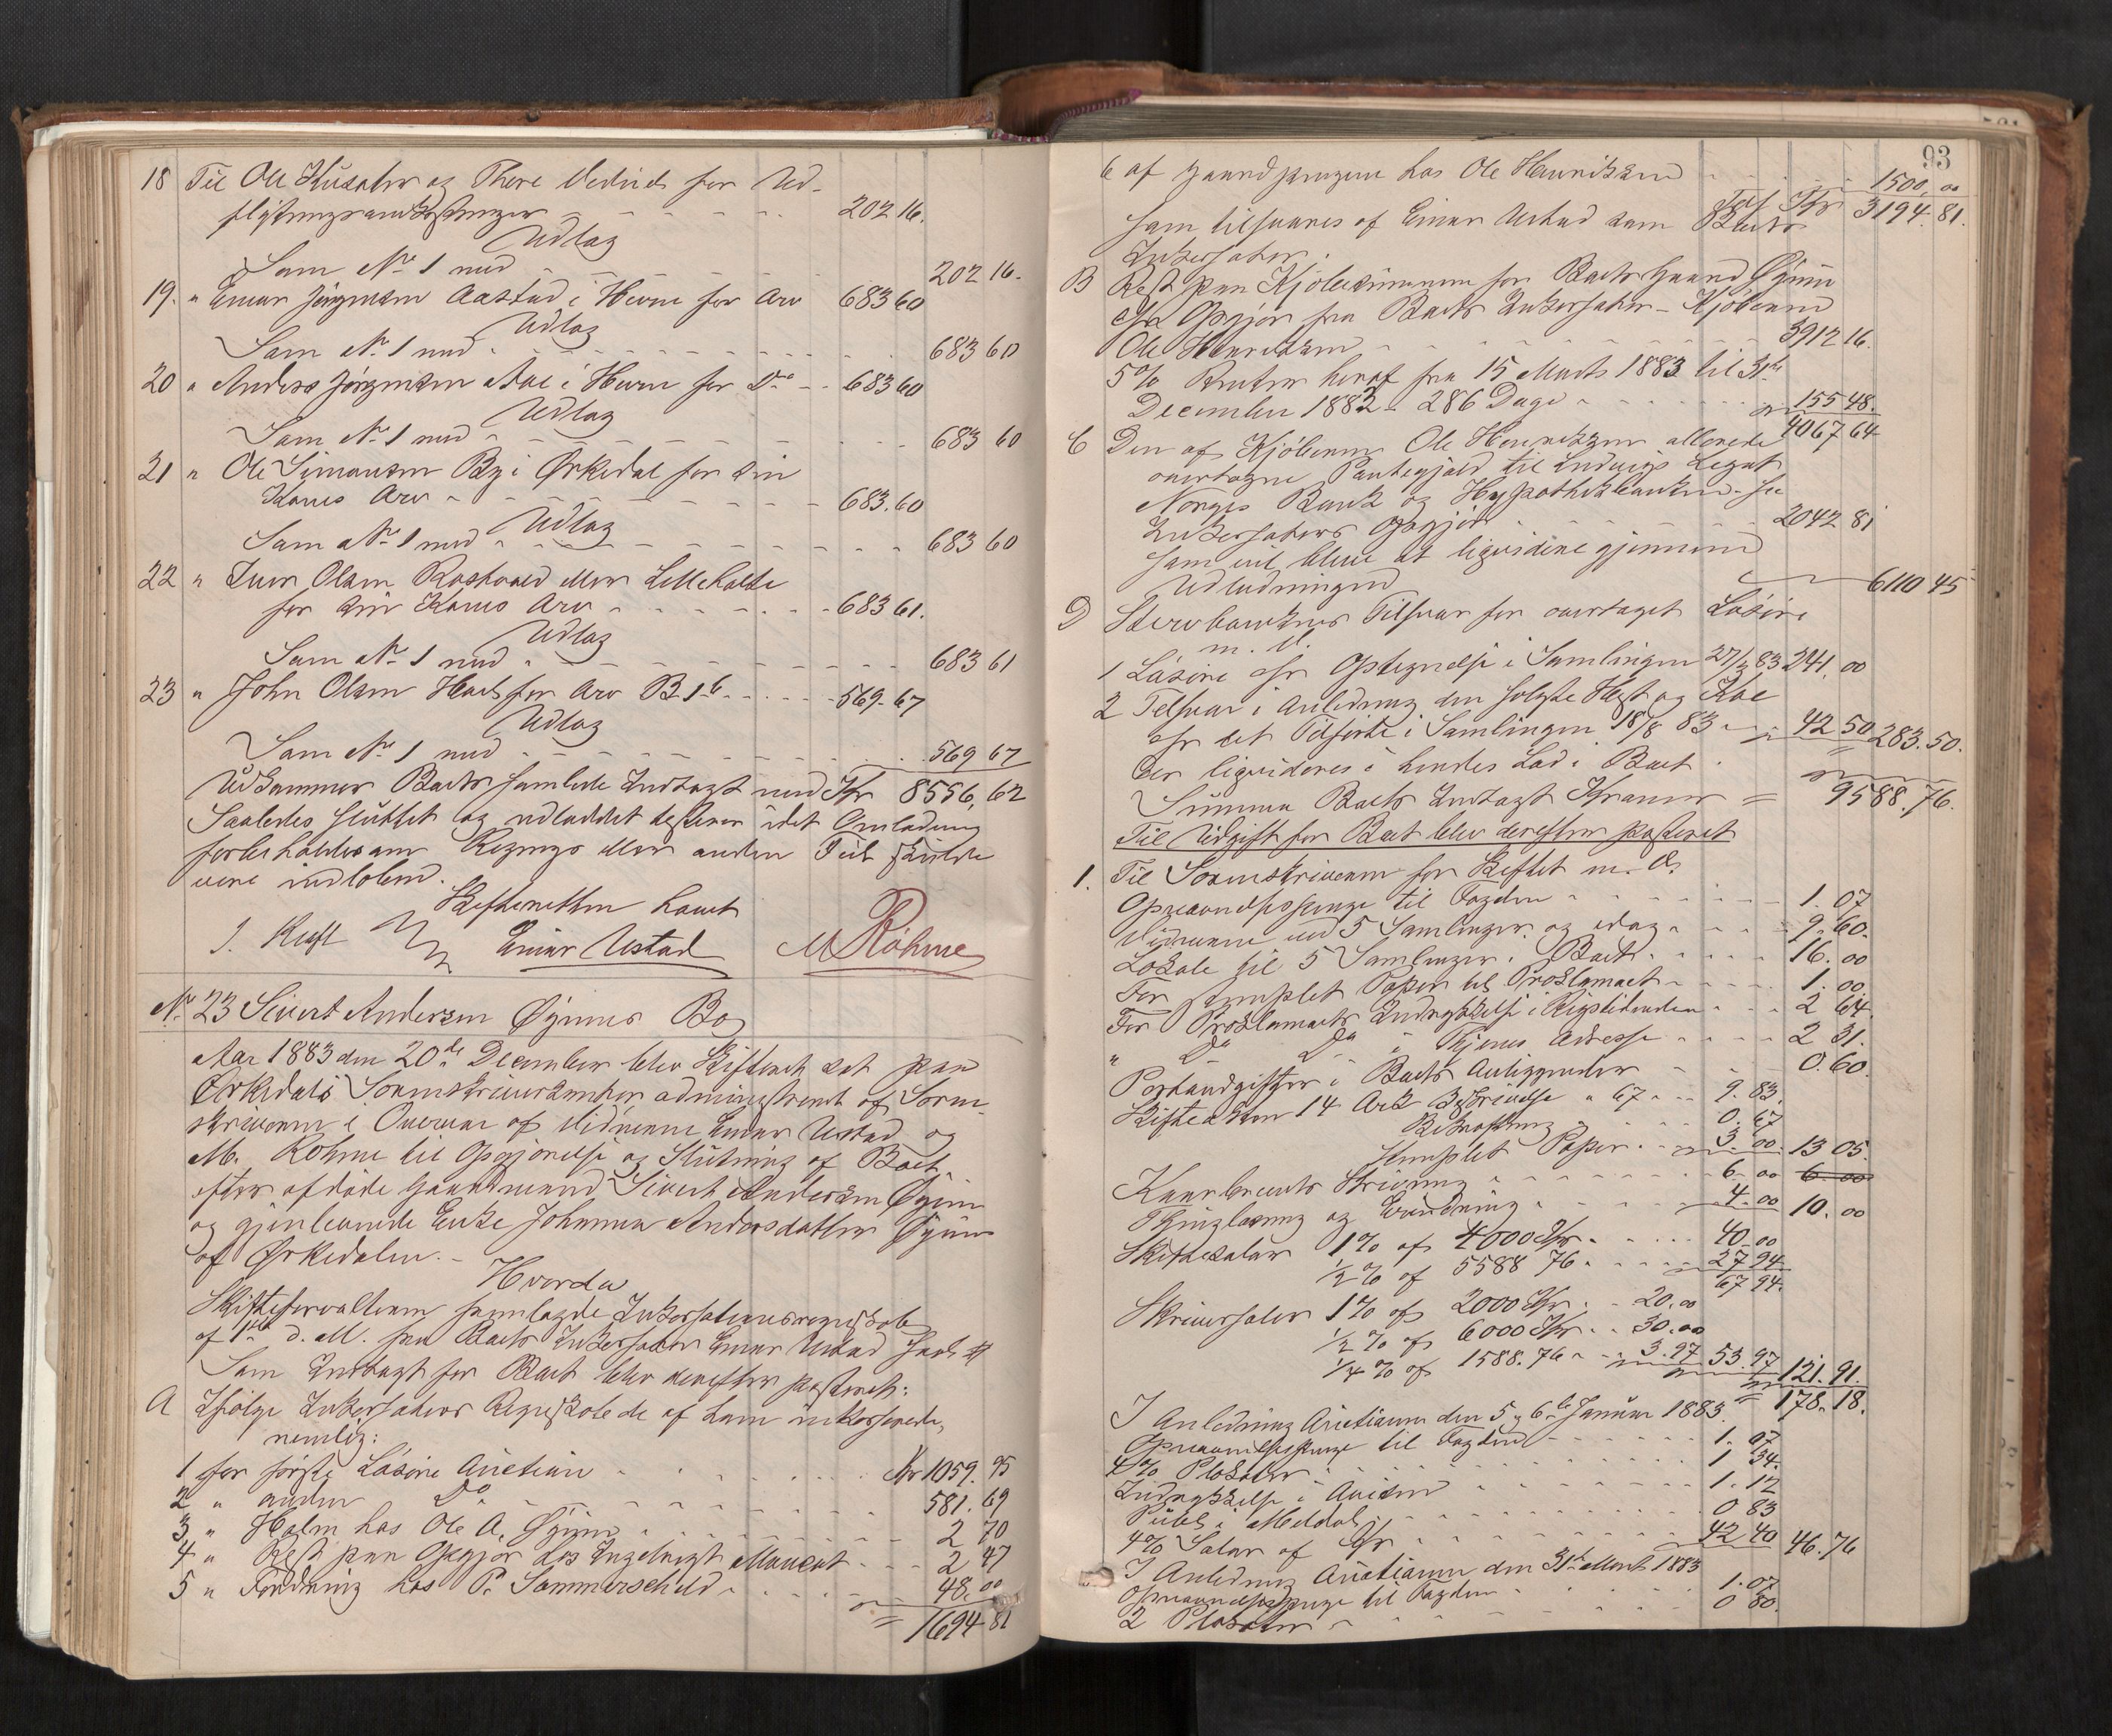 18 Til Ole Kusater og Thore Vedvik for Ud-
flytningsomkostninger 202 16.
Udlag
Som No 1 med 202 16.
19. " Einar Jørgensen Aastad i Hevne for Arv 683 60
Udlag
Som No 1 med 683 60
20 " Anders Jørgensen i Hevne for Do 683 60
Udlag
Som No 1 med 683 60
21 " Ole Simonsen By i Ørkedal for sin
Kones Arv 683.60
Udlag
Som No 1 med 683 60
22 " Iver Olsen Rostvold eller Lilleholte
for sin Kones Arv 683 61.
Udlag
Som No 1 med 683 61
23 " John Olsen for Arv 569.67
Udlag
Som No 1 med 569 67
Udkommer Boets samlede Indtægt med Kr 8556,62
Saaledes sluttet og udloddet desforuden idet Omlodning
forbeholdes om Regnings eller anden Feil skulde
være indløben.
Skifteretten hævet
J. Kraft Einar Ustad M Röhme
No 23 Sivert Andersen Øyums Bo
Aar 1883 den 20de December blev Skifteret sat paa
Ørkedals Sorenskriverkontor administreret af Soren-
skriveren i Overvær af Vidnerne Einar Ustad og
M. Rohme til Opgjørelse og Slutning af Boet
efter afdøde Gaardmand Sivert Andersen Øyum
og gjenlevende Enke Johanna Andersdatter Øyum
af Ørkedalen.-
Hvorda
Skifteforvalteren fremlagde Inkassationsregnskab
af 1ste d. M. fra Boets Inkassator Einar Ustad
Som Indtægt for Boet blev derefter posteret:
A Ifølge Inkassators Regnskab de af ham inkasserede,
nemlig:
1 for første Løsøre Auction Kr 1059.95
2 " anden Do 581.69
3 " Halm hos Ole A. Øyum 2 70
4 " Rest paa Opgjør hos Ingebrigt 2 47
5 " Fordring hos P. Sommerschild 48,00
1694 81
93
6 af Gaardpengene hos Ole Henriksen 1500,00
Kr 3194.81.
som tilsvares af Einar Ustad som Boets
Inkassator.
B Rest paa Kjøbesummen for Boets Gaard Øyum
efter Opgjør fra Boets Inkassator - Kjøberen
Ole Henriksen 3912 16.
5% Renter heraf fra 15 Marts 1883 til 31te
December 1883 - 286 Dage 155 48.
4067 64
C Den af Kjøberen Ole Henriksen allerede
overtagne Pantegjæld til Ludvigs Legat
Norges Bank og Hypothekbanken - se
Inkassators Opgjør 2042 81
som vil blive at liquidere gjennem
Udlodningen 6110 45
D Stervboenkens Tilsvar for overtaget Løsøre
m. V.
1 Løsøre efter Optegnelse i Samlingen 27/2 83 241,00
2 Tilsvar i Anledning den solgte Hest og Ko
efter det Tilførte i Samlingen 18/8 83 42 50 283.50.
der liquideres i hendes Lod i Boet
Summa Boets Indtægt Kroner = 9588.76.
Til Udgift for Boet blev derefter posteret
1. Til Sorenskriveren for Skiftet m. V.
Opnævnelsespenge til Fogden 1.07
Vidnerne ved 5 Samlinger og idag 9.60.
Lokale til 5 Samlinger i Boet 16.00
For stemplet Papir til Proklamaet 1.00
For Proklamaets Indrykkelse i Rigstidenden 2 64.
" Do Do i Thjems Adresse 2 31.
Portoudgifter i Boets Anliggender 0.60
Skifteakten 14 Ark Beskrivelse a 67 9.83.
Bekræftning 0.67
Stemplet Papir 3.00. 13 05.
Kaarbrevets Skrivning 6.00 6.00
Thinglæsning og Erindring 4.00 10.00
Skiftesalær 1% af 4000 Kr 40.00
1/2 % af 5588 76 27 94.
67 94.
Skriversalær 1% af 2000 Kr 20.00
1/2 % af 6000 Kr 30.00
1/4 % af 1588.76 3.97 53.97 121.91.
= 178.18.
I Anledning Auctionen den 5 og 6te Januar 1883.
Opnævnelsespenge til Fogden 1.07
Plakater 1 34.
Indrykkelse i Avisen 1.12
Publ. i Meldal 0 83
4% Salær af Kr 42 40 46.76
I Anledning Auctionen den 31te Marts 1883
Opnævnelsespenge til Fogden 1.07
2 Plakater 0 80.